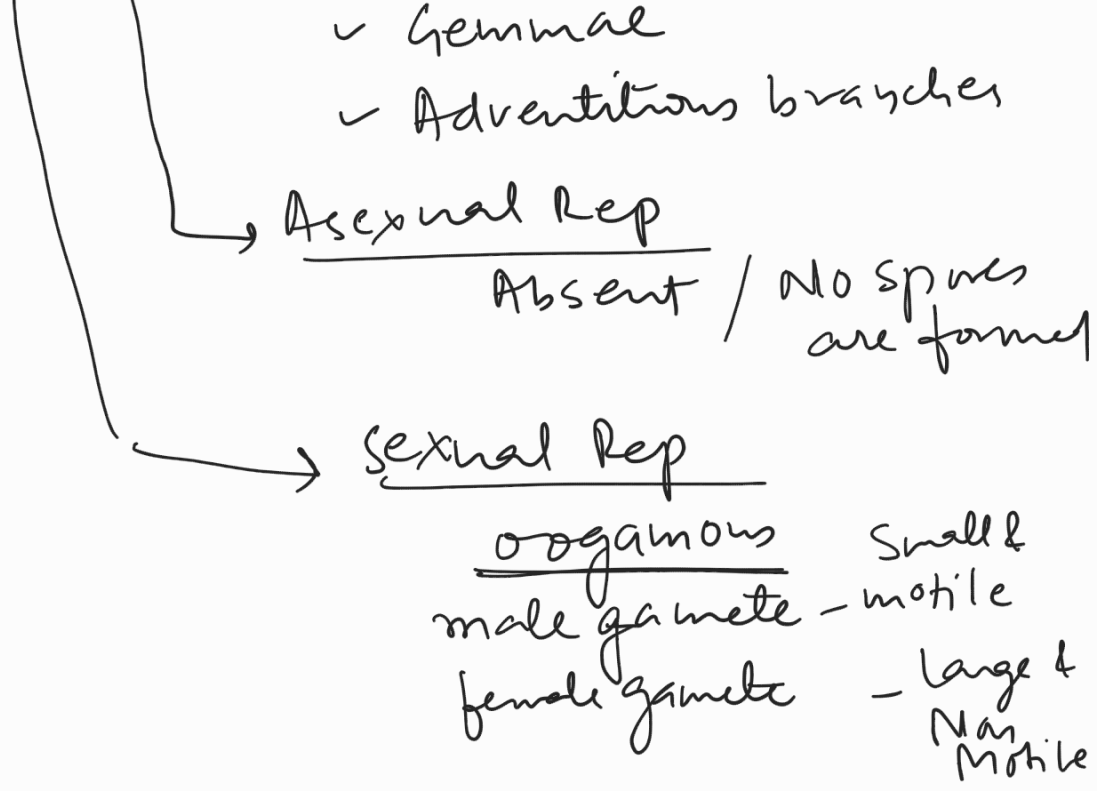 ✓ Gemmae
✓ Adventitious branches
Asexual Rep
Absent / No spores
are formed
Sexual Rep
oogamous
male gamete – Small & motile
female gamete – Large & Non Motile